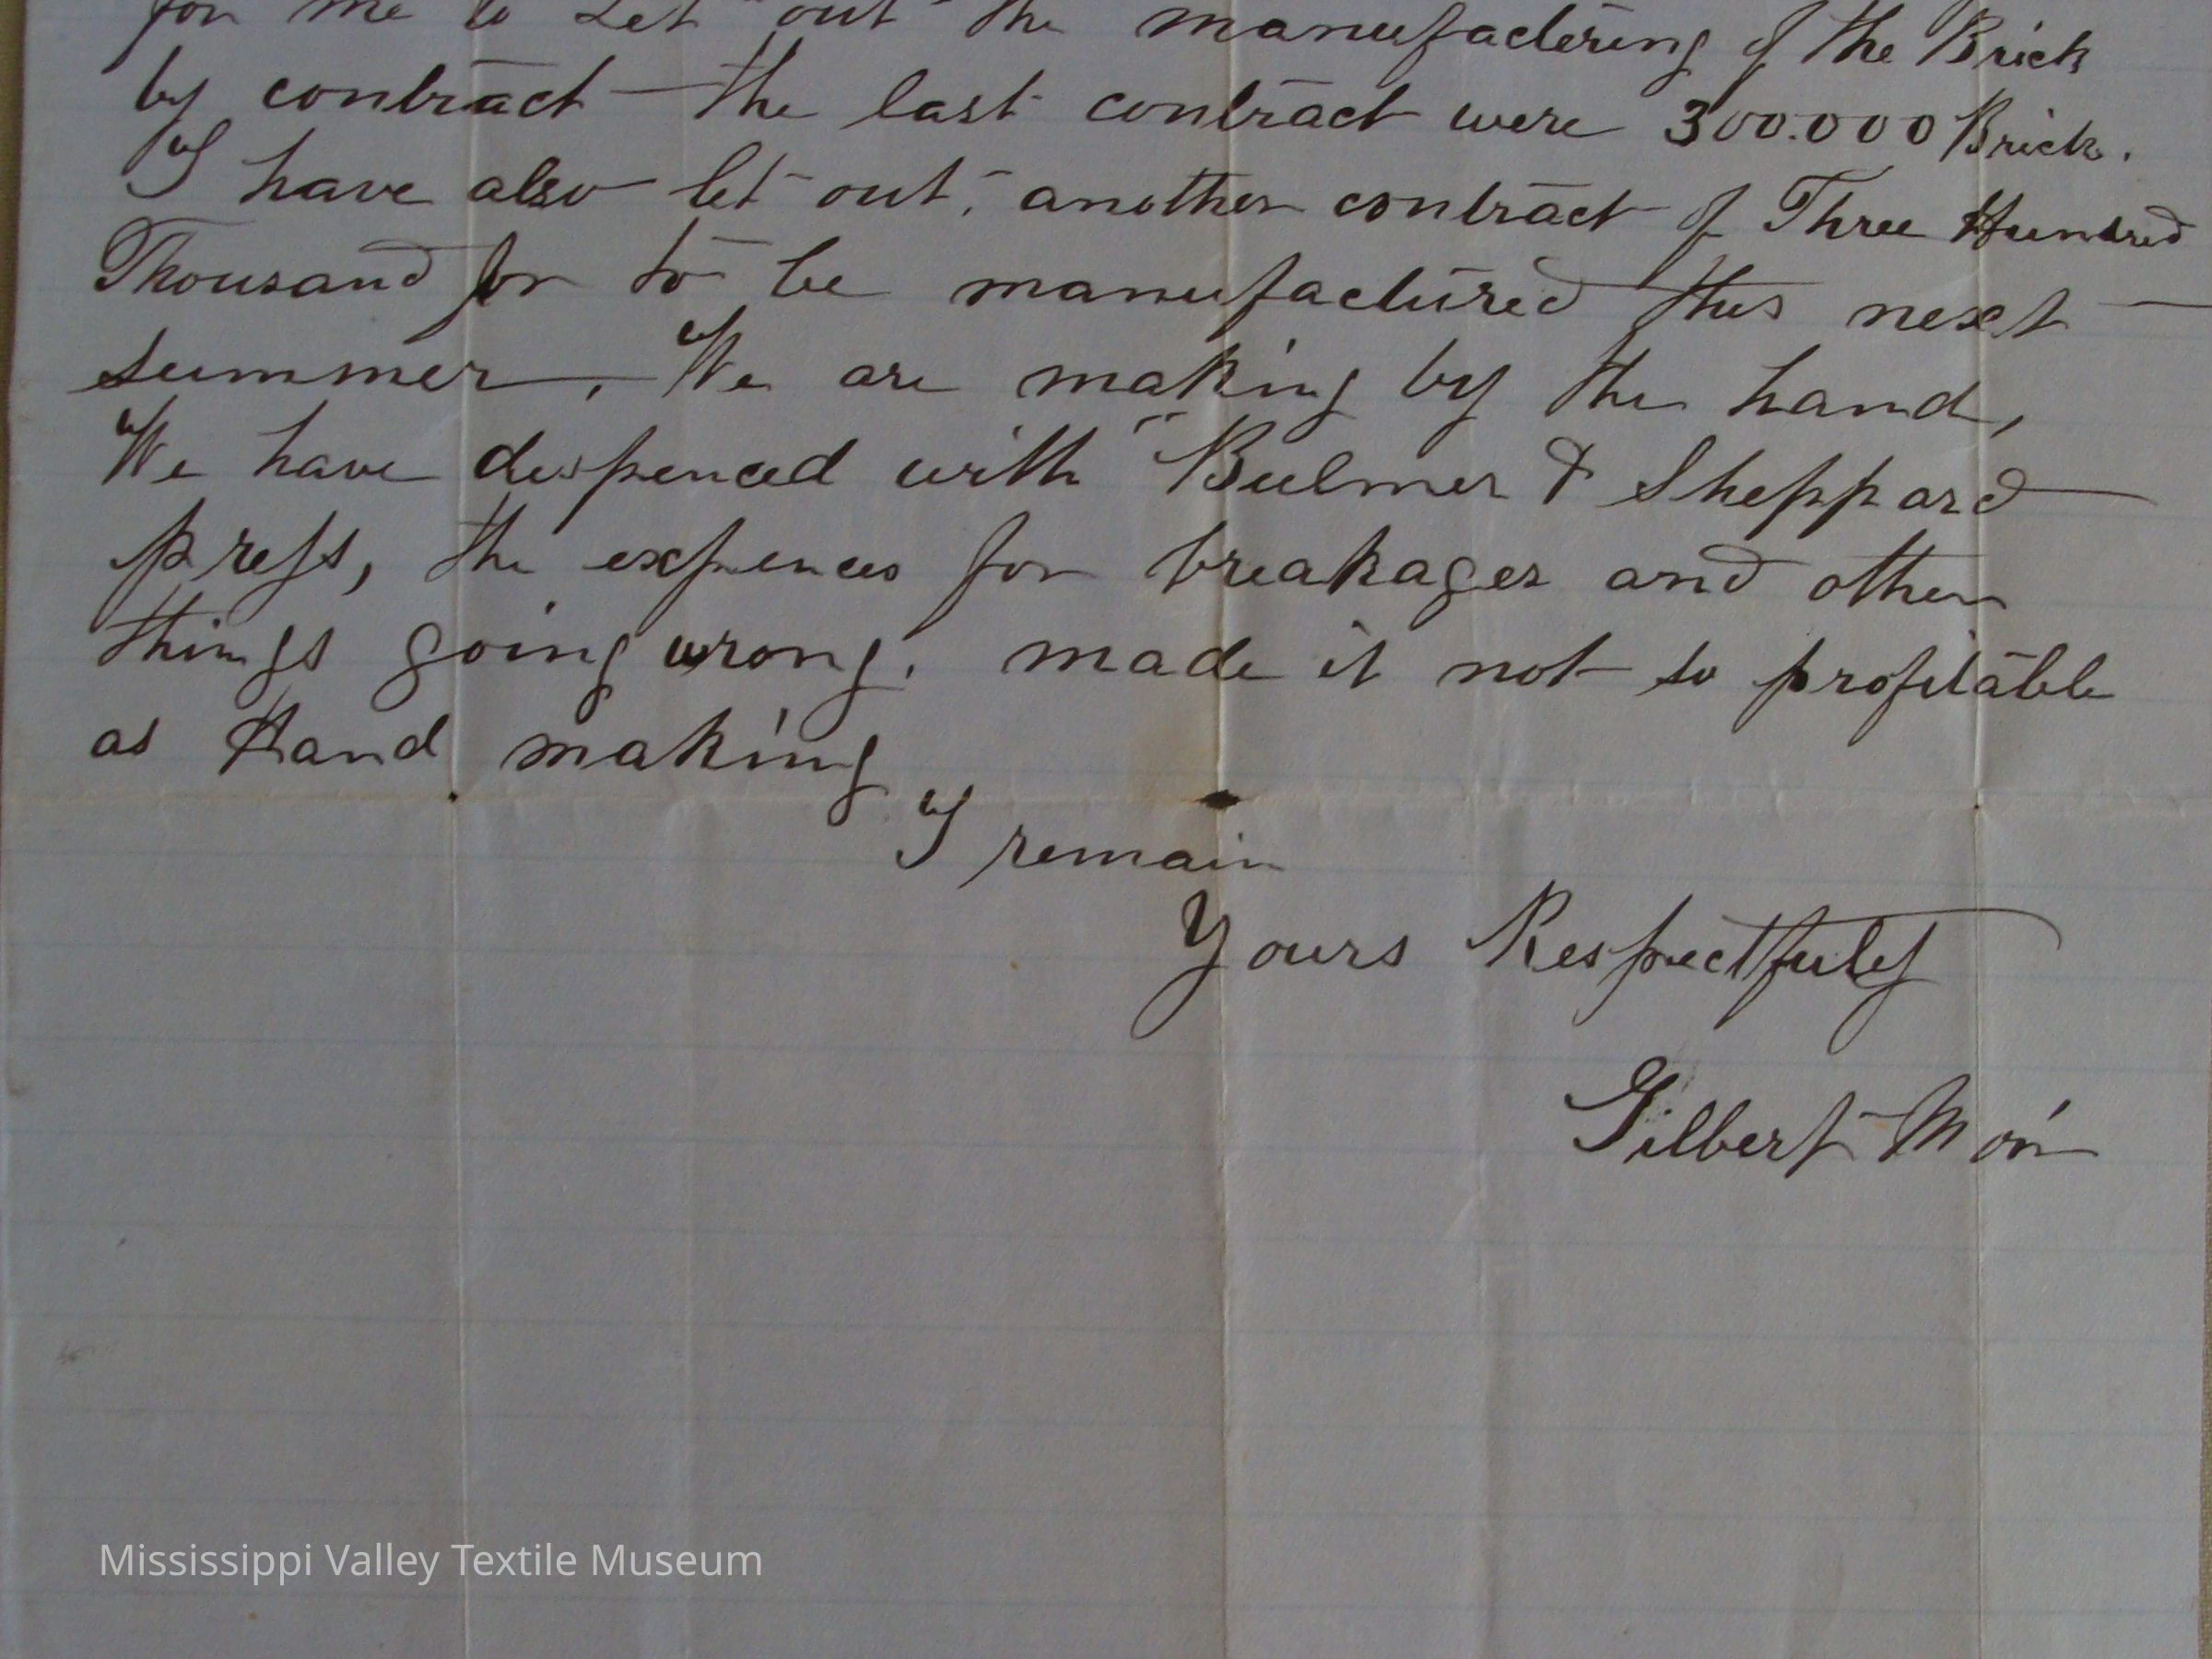 for me to Let out the manufactering of the Brick
by contract the last contract were 300.000 Brick.
I have also let out, another contract of Three Hundred
Thousand for to be manufactured this next
summer, We are making by the hand,
We have dispenced with "Bulmer & Sheppard
press, the expences for breakages and other
things going wrong, made it not so profitable
as Hand making
I remain
Yours Respectfuly
Gilbert
Mississippi Valley Textile Museum